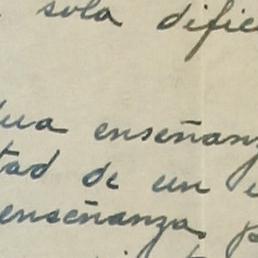 sola dific
enseñanz
tad de un
enseñanza p